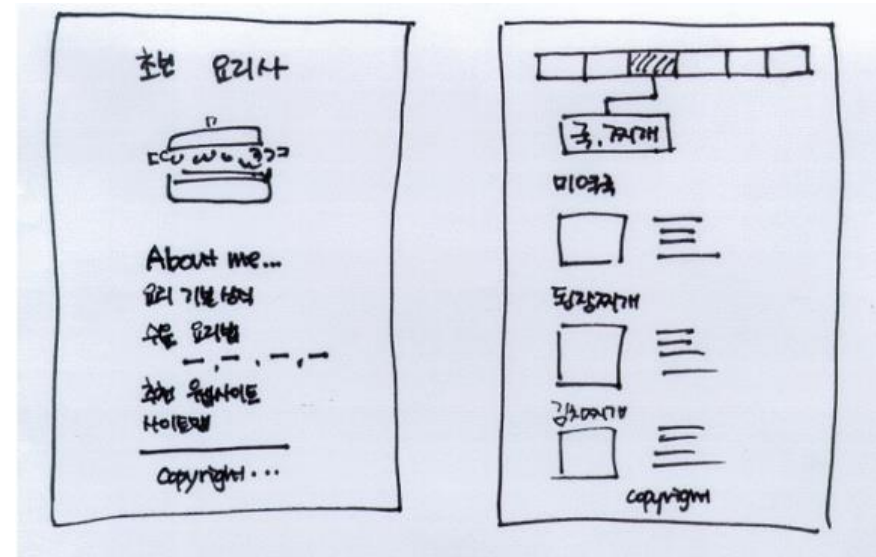 초보 요리사
About me...
요리 기본 상식
수준 요리법
추천 웹사이트
사이트맵
Copyright...
국, 찌개
미역국
된장찌개
김치찌개
copyright